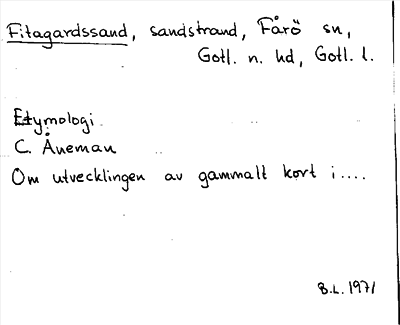 Fitagardssand, sandstrand, Fårö sn,
Gotl. n. hd, Gotl. l.
Etymologi.
C. Åneman
Om utvecklingen av gammalt kort i....
B.L. 1971